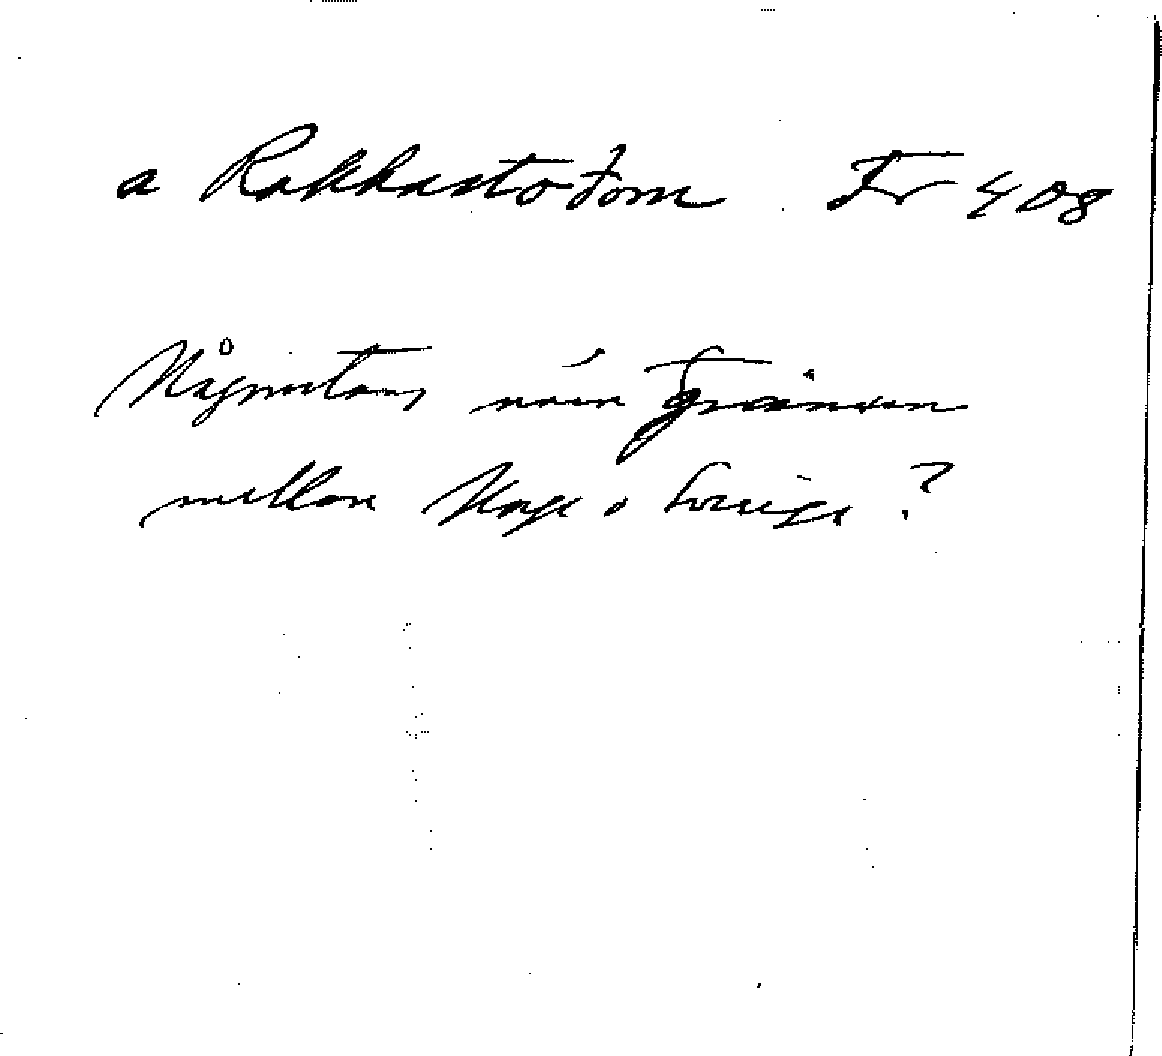 a Rakkastotom Fr 408
Någonstans nära gränsen
mellan Norge o Sverige ?